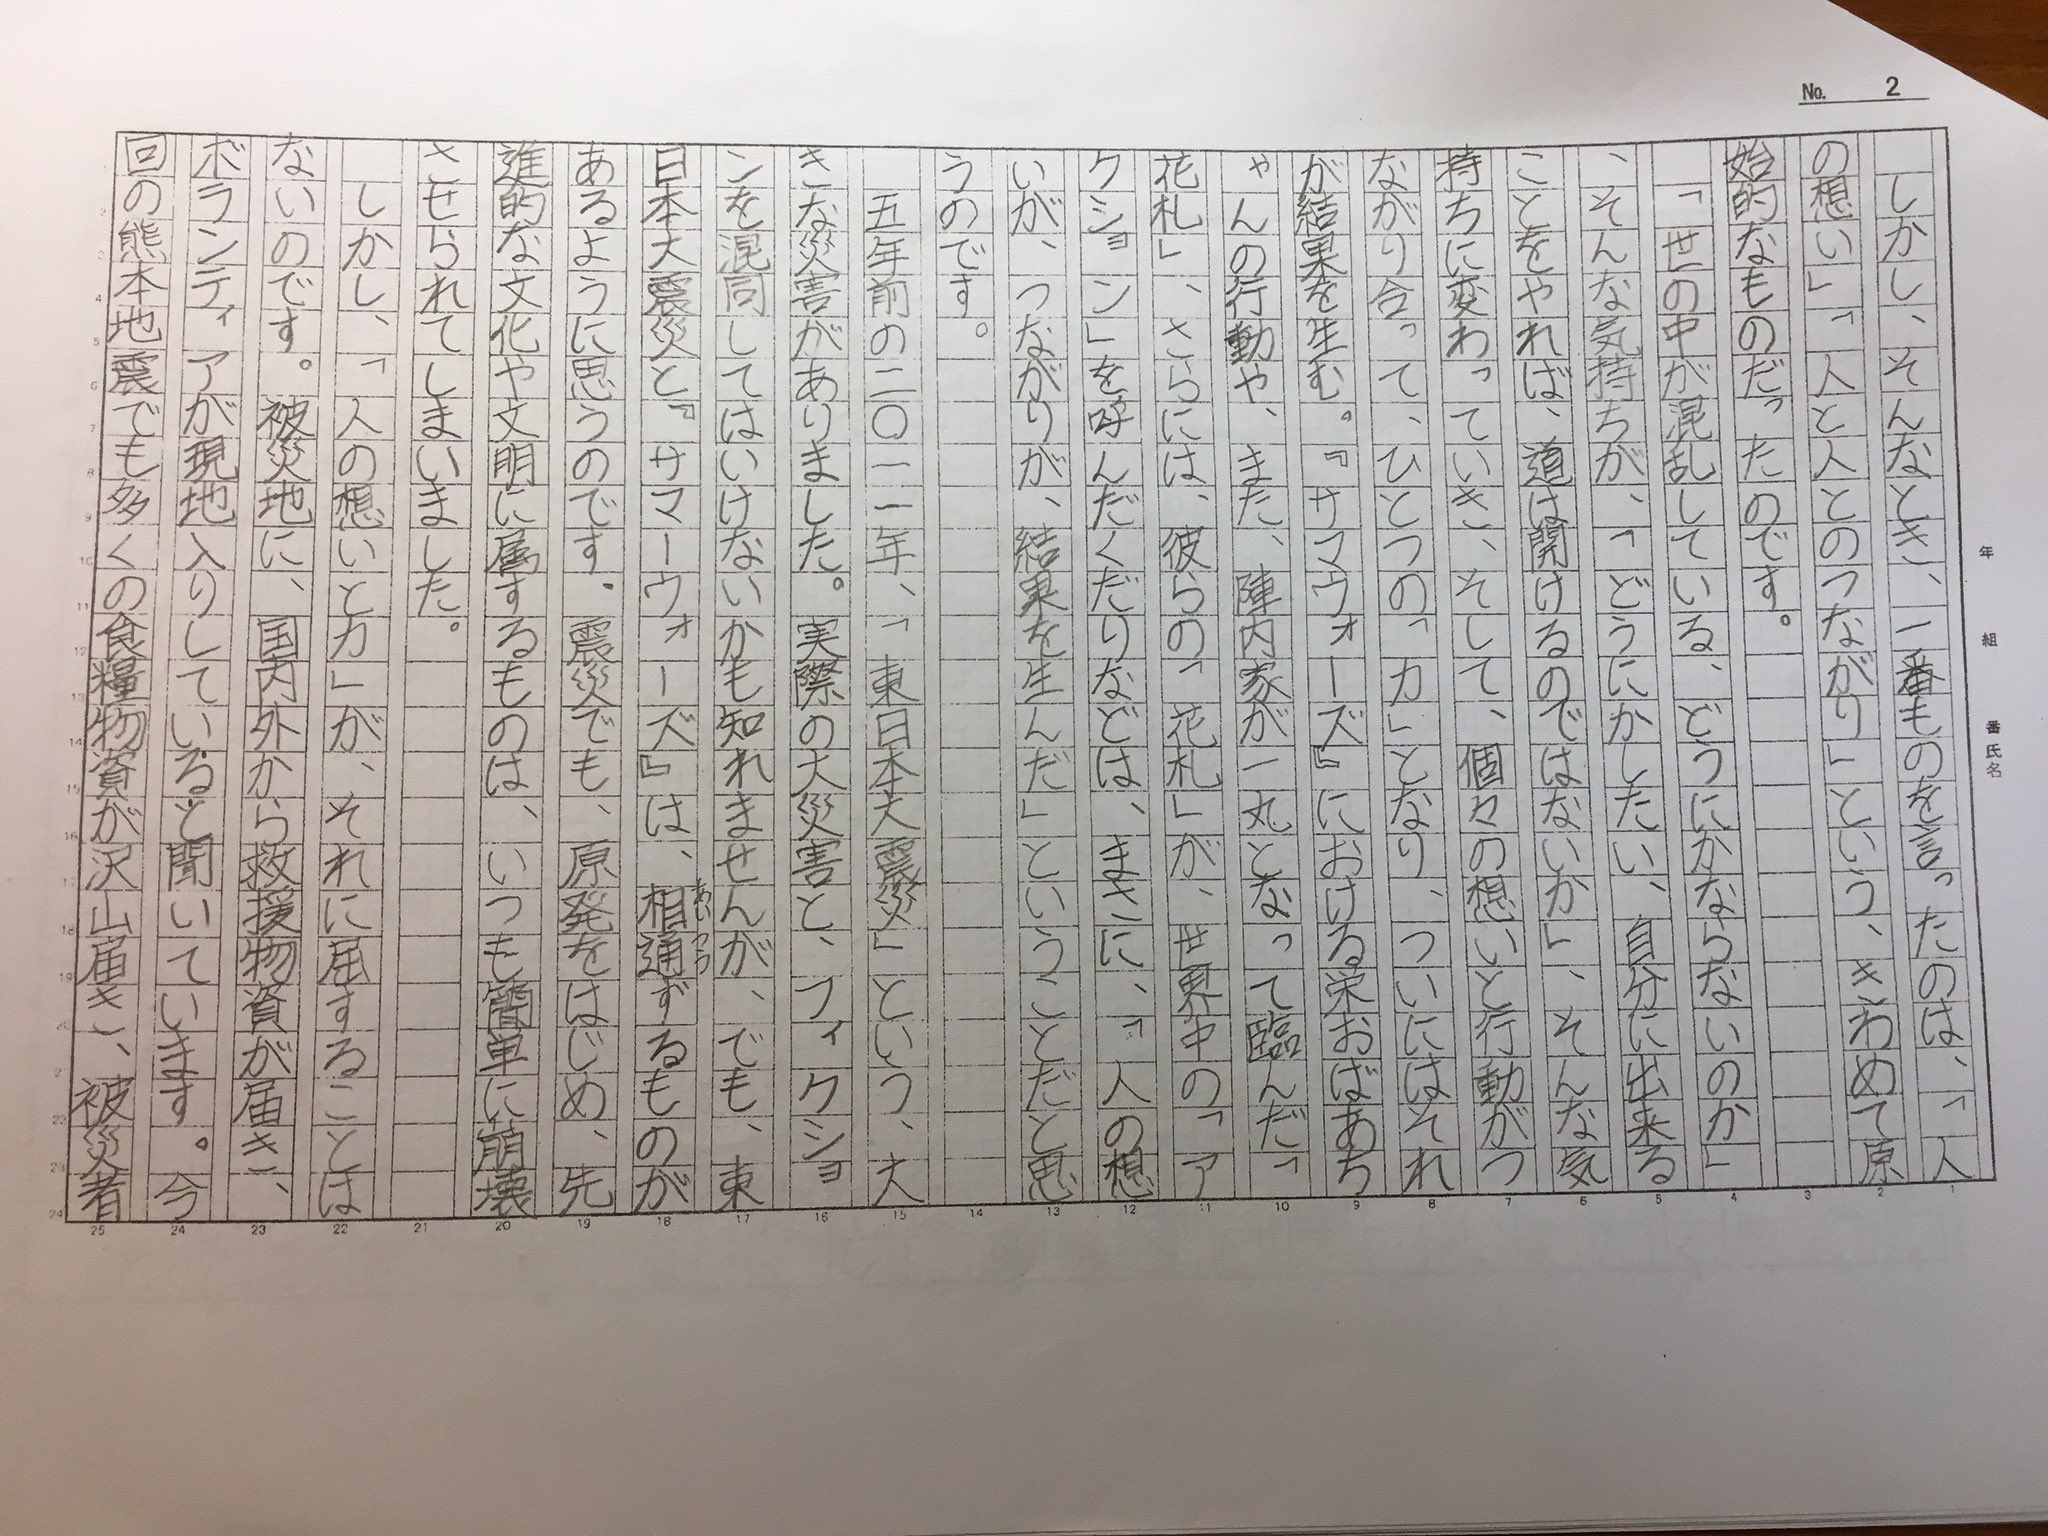 No. 2
年 組 番 氏名
しかし、そんなとき、一番ものを言ったのは、「人
の想い」「人と人とのつながり」という、きわめて原
始的なものだったのです。
「世の中が混乱している、どうにかならないのか」
、そんな気持ちが、「どうにかしたい、自分に出来る
ことをやれば、道は開けるのではないか」、そんな気
持ちに変わっていき、そして、個々の想いと行動がつ
ながり合って、ひとつの「力」となり、ついにはそれ
が結果を生む。『サマウォーズ』における栄おばあち
ゃんの行動や、また、陣内家が一丸となって臨んだ「
花札」、さらには、彼らの「花札」が、世界中の「ア
クション」を呼んだくだりなどは、まさに、「人の想
いが、つながりが、結果を生んだ」ということだと思
うのです。
五年前の二〇一一年、「東日本大震災」という、大
きな災害がありました。実際の大災害と、フィクショ
ンを混同してはいけないかも知れませんが、でも、東
日本大震災と『サマーウォーズ』は、相通ずるものが
あいつう
あるように思うのです。震災でも、原発をはじめ、先
進的な文化や文明に属するものは、いつも簡単に崩壊
させられてしまいました。
しかし、「人の想いと力」が、それに屈することは
ないのです。被災地に、国内外から救援物資が届き、
ボランティアが現地入りしていると聞いています。今
回の熊本地震でも多くの食糧物資が沢山届き、被災者
1 2 3 4 5 6 7 8 9 10 11 12 13 14 15 16 17 18 19 20 21 22 23 24 25